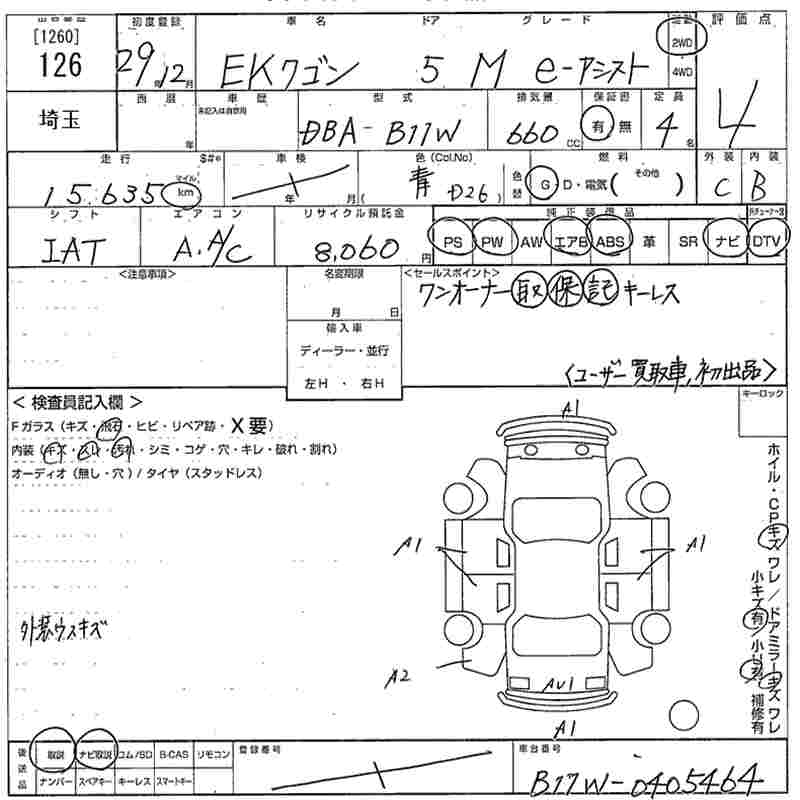 [1260]
126
初度登録 車名 ドア グレード 2WD 4WD 評価点
29年12月 EKワゴン 5 M e-アシスト 4
埼玉
西暦 年 車歴 未記入は自家用 型式 排気量 保証書 定員
DBA-B11W 660cc 有・無 4名
走行 $#* 車検 色(Col.No) 色替 燃料 外装 内装
15.635 マイル km 年 月 青 D26 G・D・電気( その他 ) C B
シフト エアコン リサイクル預託金 純正装備品
IAT A.A/C 8,060円 PS PW AW エアB ABS 革 SR ナビ DTV
<注意事項> 名変期限 <セールスポイント>
ワンオーナー 取 保 記 キーレス
月 日
輸入車
ディーラー・並行
左H・右H
<ユーザー買取車,初出品>
< 検査員記入欄 > キーロック
Fガラス(キズ・飛石・ヒビ・リペア跡・X要)
内装(キズ・スレ・汚れ・シミ・コゲ・穴・キレ・破れ・割れ)
オーディオ(無し・穴)/タイヤ(スタッドレス)
A1
A1
A1
外装ウスキズ
A2
AU1
A1
ホイル・CPキズワレ/ドアミラーキズワレ
小キズ有/小凹有/補修有
後送品 取説 ナビ取説 コム/SD B-CAS リモコン 登録番号 車台番号
ナンバー スペアキー キーレス スマートキー
B11W-0405464